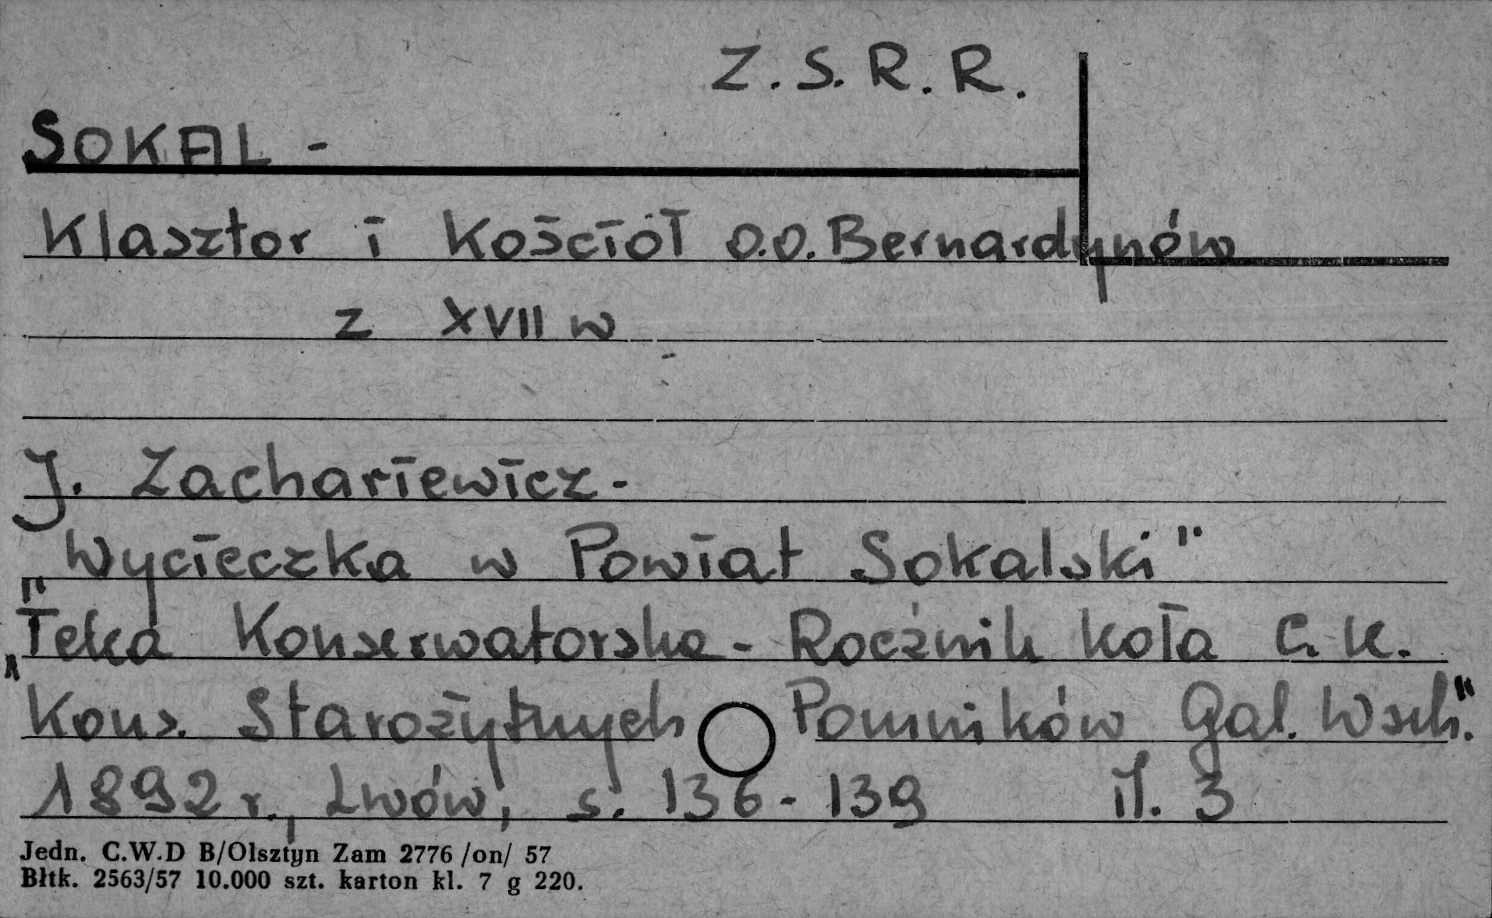 Z.S.R.R.
SOKAL -
Klasztor i Kościół O.O. Bernardynów
z XVII w
J. Zachariewicz -
„Wycieczka w Powiat Sokalski"
„Teka Konserwatorska - Rocznik koła C. K.
Kons. Starożytnych Pomników Gal. Wsch."
1892 r., Lwów, s. 136-139 il. 3
Jedn. C.W.D B/Olsztyn Zam 2776 /on/ 57
Błtk. 2563/57 10.000 szt. karton kl. 7 g 220.